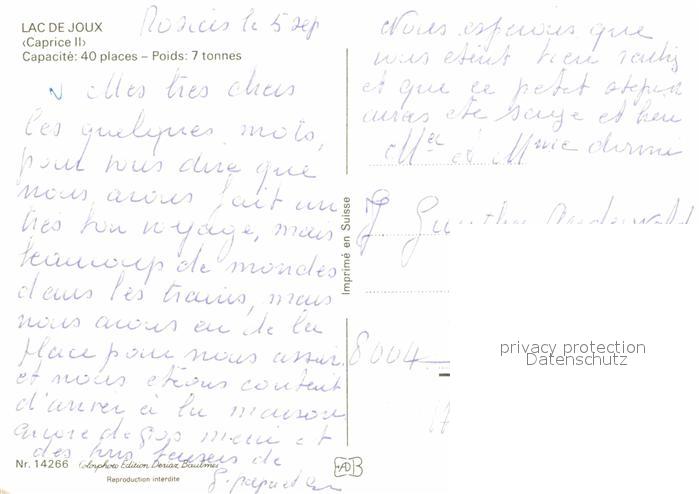 LAC DE JOUX
‹Caprice II›
Capacité: 40 places – Poids: 7 tonnes
le 5 sep
Mes très chers
les quelques mots,
pour vous dire que
nous avons fait un
très bon voyage, mais
beaucoup de mondes
dans les trains, mais
nous avons eu de la
place pour nous assoir.
et nous étions content
d'arrivé à la maison
encore de gros merci et
des bons baisers de
Nous espérons que
vous etient bien
et que ce petit
auras été sage et bien
dormi
Mel et Mme
Imprimé en Suisse
8004
privacy protection
Datenschutz
Nr. 14266 Colorphoto Edition Deriaz Baulmes
Reproduction interdite